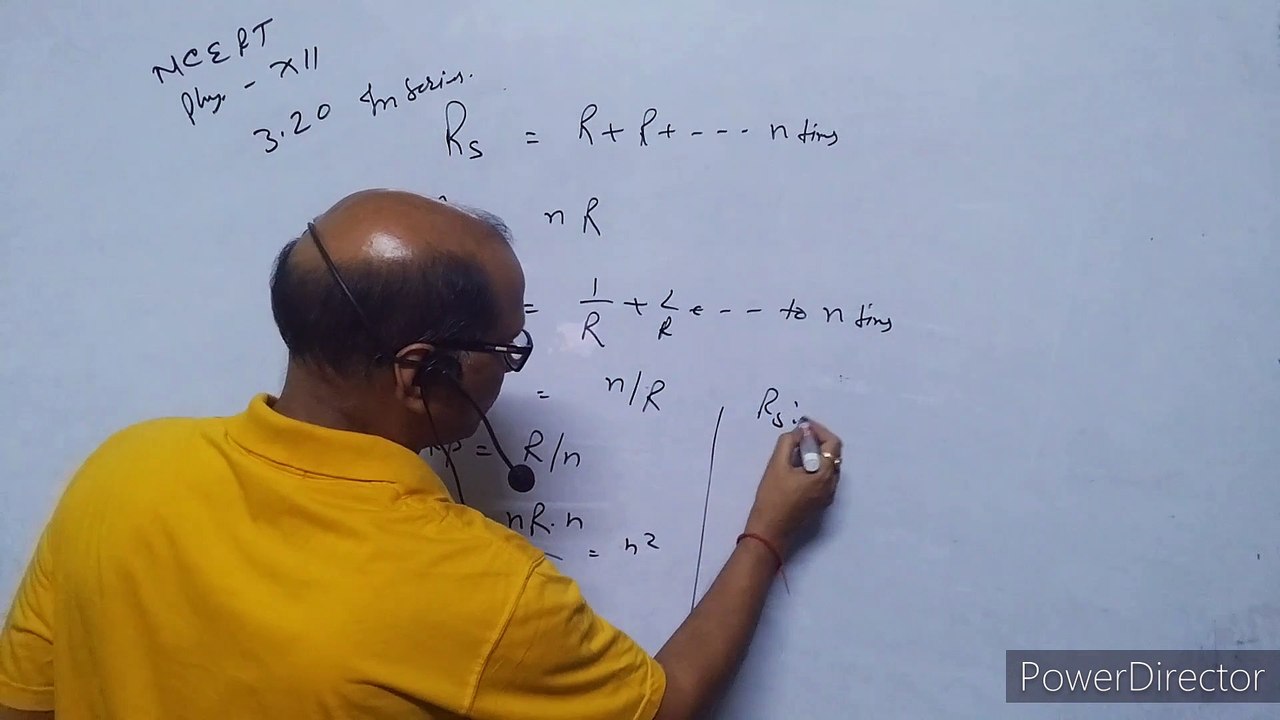 NCERT
Phy. - XII
3.20 In series.
Rs = R + R + - - - n times
n R
= 1/R + 1/R + - - - to n times
= n/R
= R/n
nR. n
= n²
Rs :
PowerDirector